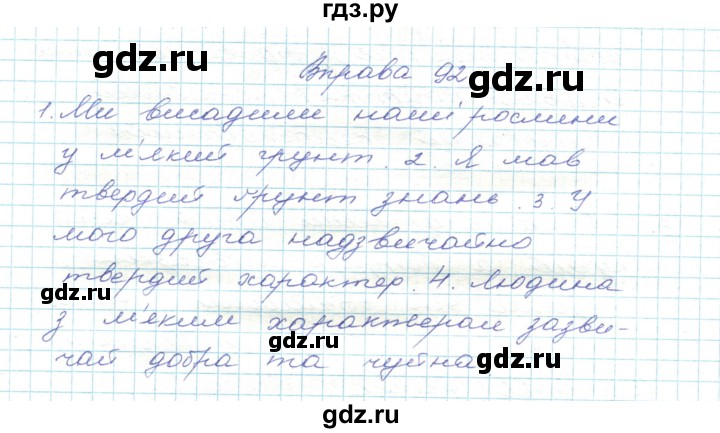 гдз.ру
gdz.ru gdz.ru
Вправа 92
1. Ми висадили наші рослини
у м'який грунт. 2. Я мав
твердий ґрунт знань. 3. У
мого друга надзвичайно
твердий характер. 4. Людина
з м'яким характером зазви-
чай добра та чуйна.
gdz.ru gdz.ru
gdz.ru gdz.ru
gdz.ru